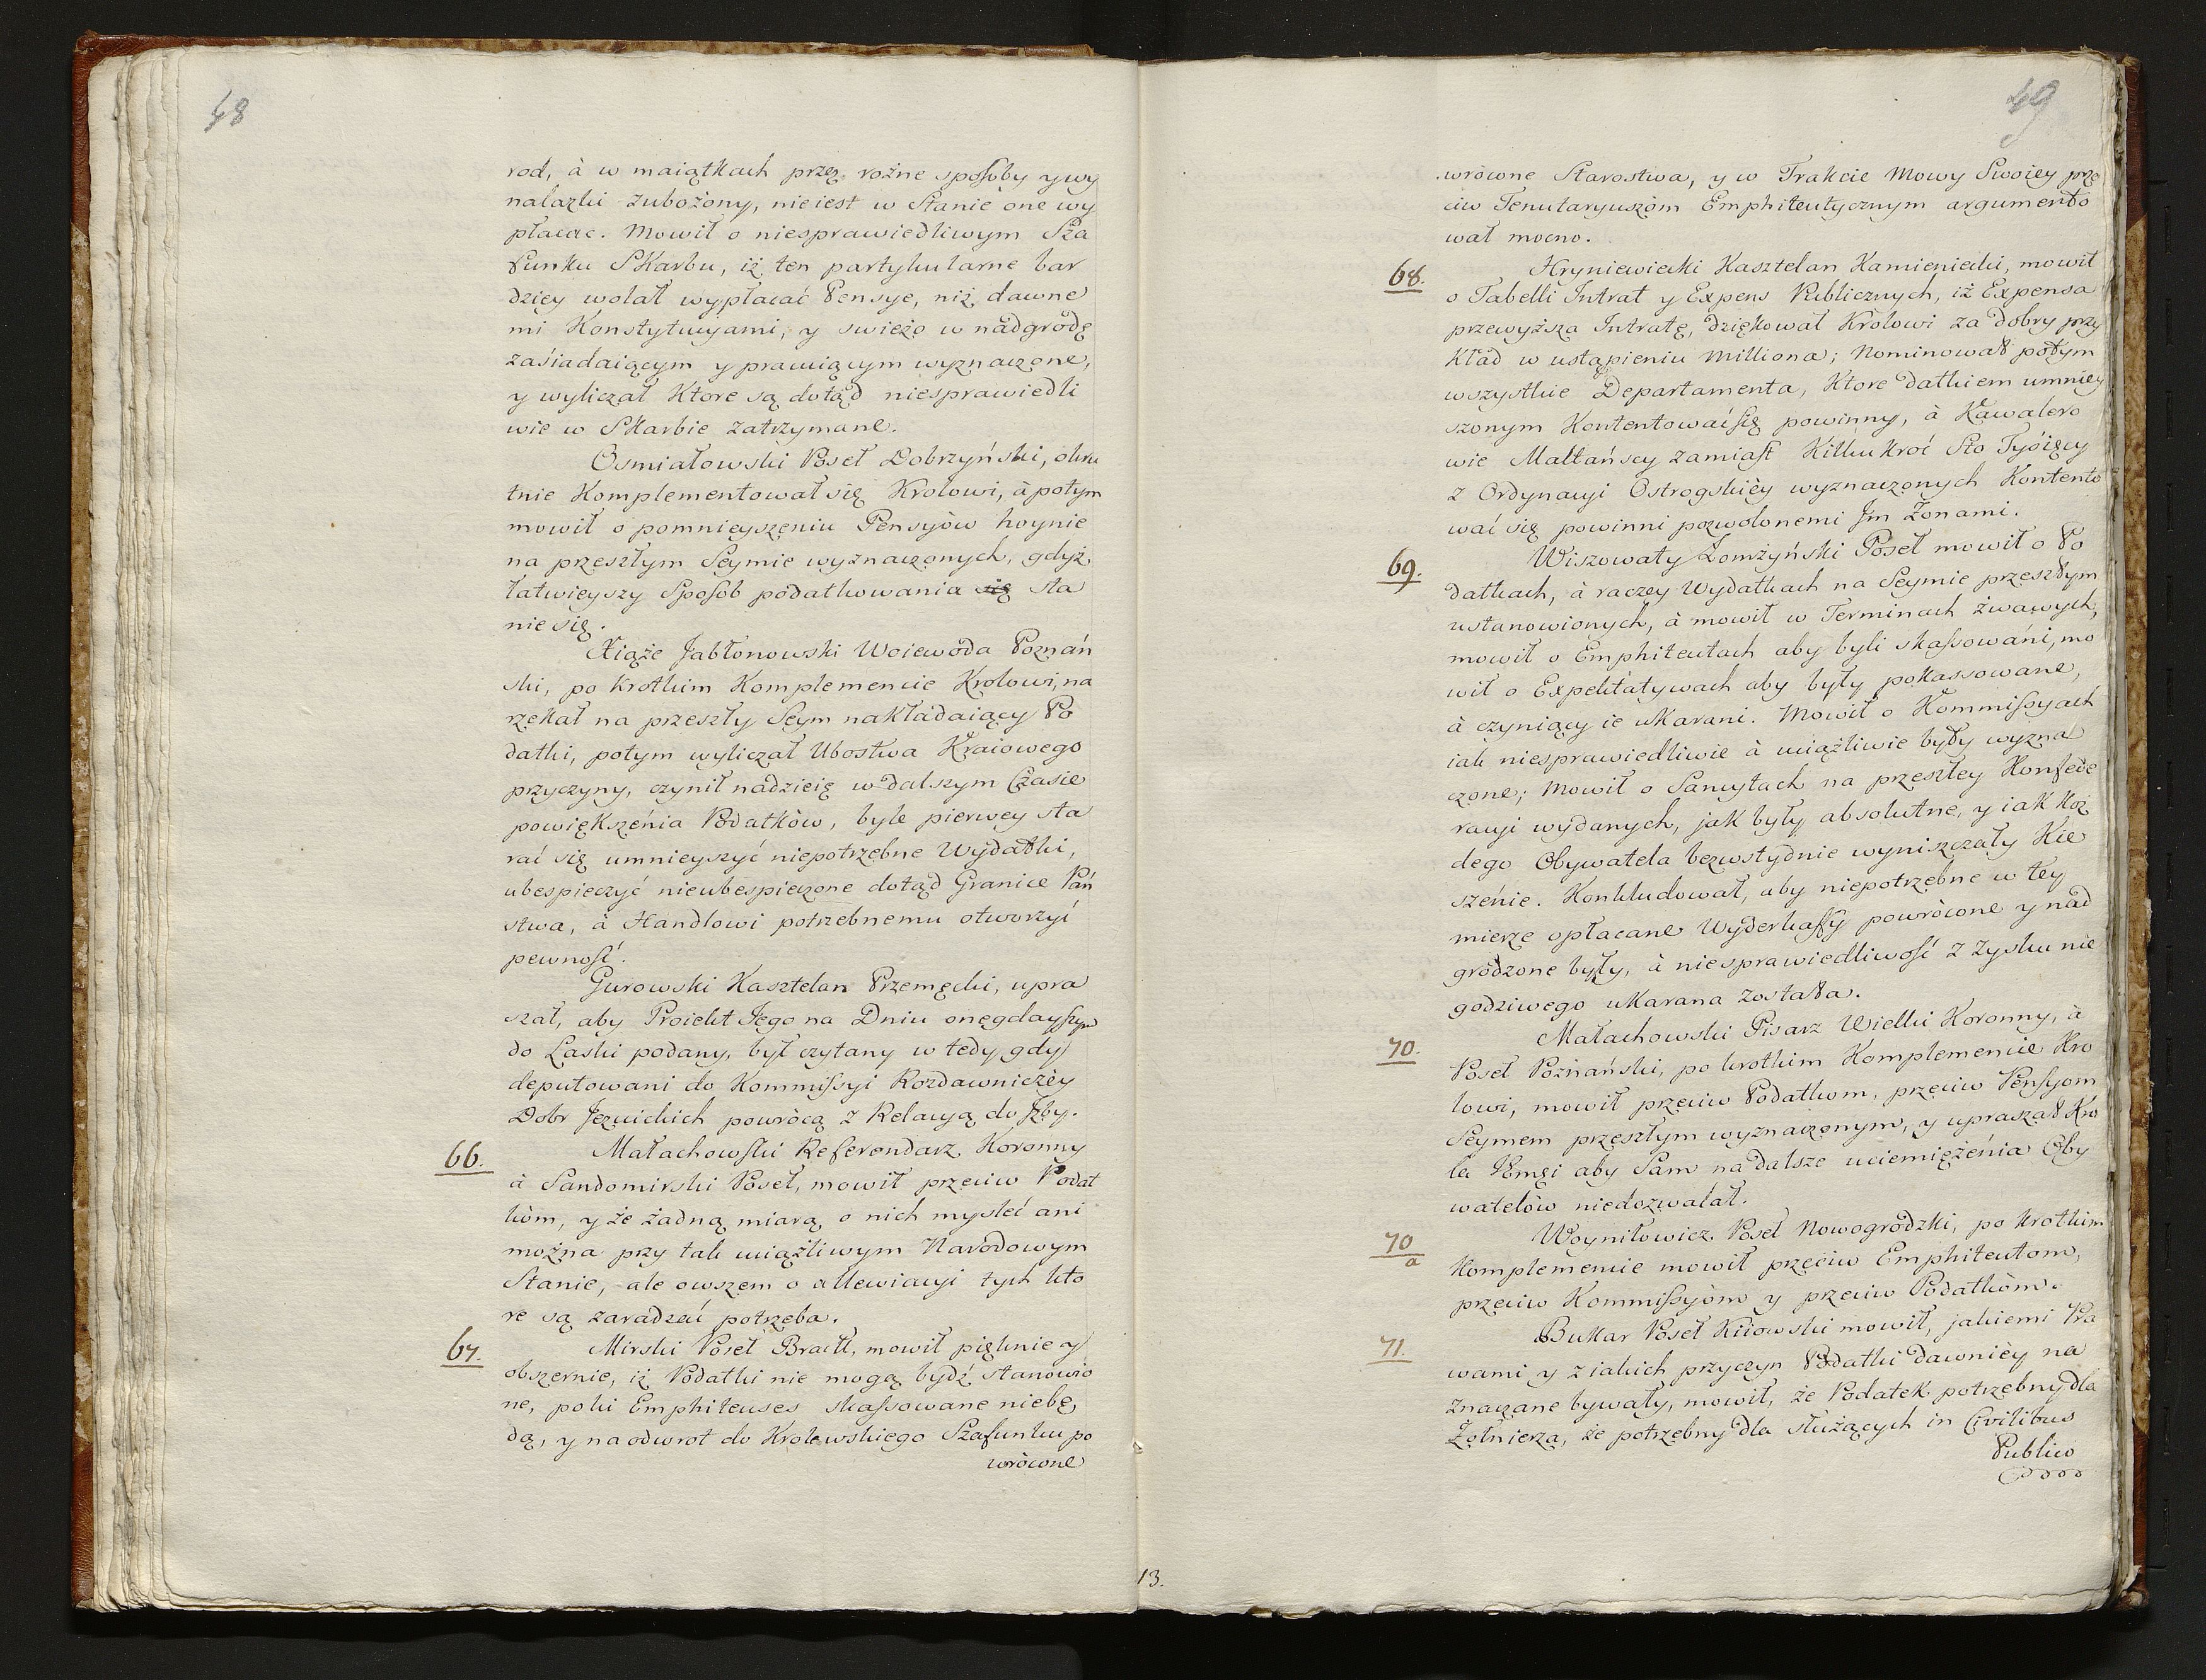 48
rod, à w maiątkach przez rożne sposoby y wy
nalazki zubożony, nie iest w Stanie one wy
płacac. Mowił o niesprawiedliwym Sza
funku Skarbu, iż ten partykularne bar
dziey wolał wypłacać Pensye, niż dawne
mi Konstytucyami, y swieżo w nadgrodę
zasiadaiącym y pracuiącym wyznaczone,
y wyliczał Ktore są dotąd niesprawiedli
wie w Skarbie zatrzymane.
Osmiałowski Poseł Dobrzyński, okru
tnie Komplementował się Krolowi, à potym
mowił o pomnieyszeniu Pensyòw hoynie
na przeszłym Seymie wyznaczonych, gdyż
łatwieyszy Sposob podatkowania się sta
nie się.
Xiąże Jabłonowski Woiewoda Poznań
ski, po krotkim Komplemencie Krolowi, na
rzekał na przeszły Seym nakładaiący Po
datki, potym wyliczał Ubostwa Kraiowego
przyczyny, czynił nadzieię w dalszym Czasie
powiększenia Podatkòw, byle pierwey sta
rać się umnieyszyć niepotrzebne Wydatki,
ubespieczyć nieubespieczone dotąd Granice Pań
stwa, à Handlowi potrzebnemu otworzyć
pewność.
Gurowski Kasztelan Przemęcki, upra
szał, aby Proiekt Jego na Dniu onegdayszym
do Laski podany, był czytany w tedy gdy
deputowani do Kommissyi Rozdawniczèy
Dobr Jezuickich powròcą z Relacyą do Jzby.
66.
Małachowski Referendarz Koronny
à Sandomirski Poseł, mowił przeciw Podat
kòm, y że żadną miarą o nich mysleć ani
można przy tak uciążliwym Narodowym
Stanie, ale owszem o allewiacyi tych kto
re są zaradzać potrzeba.
67.
Mirski Poseł Bracł, mowił pięknie y
obszernie, iż Podatki nie mogą bydź stanowio
ne, poki Emphiteuses skassowane niebę
dą, y na odwrot do Krolewskiego Szafunku po
wròcone
49
wròcone Starostwa, y w Trakcie Mowy Swoiey prze
ciw Tenutaryuszòm Emphiteutycznym argumento
wał mocno.
68.
Hryniewiecki Kasztelan Kamieniecki, mowił
o Tabelli Intrat y Expens Publicznych, iż Expensa
przewyższa Intratę, dziękował Krolowi za dobry przy
kład w ustąpieniu Milliona; Nominował potym
wszystkie Departamenta, Ktore datkiem umniey
szonym Kontentować się powinny, à Kawalero
wie Maltańscy zamiast Kilku kroć Sto Tysięcy
z Ordynacyi Ostrogskièy wyznaczonych Kontento
wać się powinni pozwolonemi Jm Żonami.
69.
Wiszowaty Łomżyński Poseł mowił o Po
datkach, à raczey Wydatkach na Seymie przeszłym
ustanowionych, à mowił w Terminach żwawych,
mowił o Emphiteutach aby byli skassowani, mo
wił o Expektatywach aby były pokassowane,
à czyniący ie ukarani. Mowił o Kommissyach
iak niesprawiedliwie à uciążliwie były wyzna
czone; Mowił o Sancytach na przeszłey Konfede
racyi wydanych, jak były absolutne, y iak Każ
dego Obywatela bezwstydnie wyniszczały Kie
szenie. Konkludował, aby niepotrzebne w tey
mierze opłacane Wyderkaffy powròcone y nad
grodzone były, à niesprawiedliwość z Zysku nie
godziwego ukarana została.
70.
Małachowski Pisarz Wielki Koronny, à
Poseł Poznański, po krotkim Komplemencie Kro
lowi, mowił przeciw Podatkom, przeciw Pensyom
Seymem przeszłym wyznaczonym, y upraszał Kro
la Jmci aby Sam na dalsze uciemiężenia Oby
watelòw niedozwalał.
70
a
Woyniłowicz Poseł Nowogrodzki, po krotkim
Komplemencie mowił przeciw Emphiteutom,
przeciw Kommissyòm y przeciw Podatkòm.
71.
Bukar Poseł Kiiowski mowił, jakiemi Pra
wami y z iakich przyczyn Podatki dawnièy na
znaczane bywały, mowił, że Podatek potrzebny dla
Żołnierza, że potrzebny dla służących in Civilibus
Publico
13.